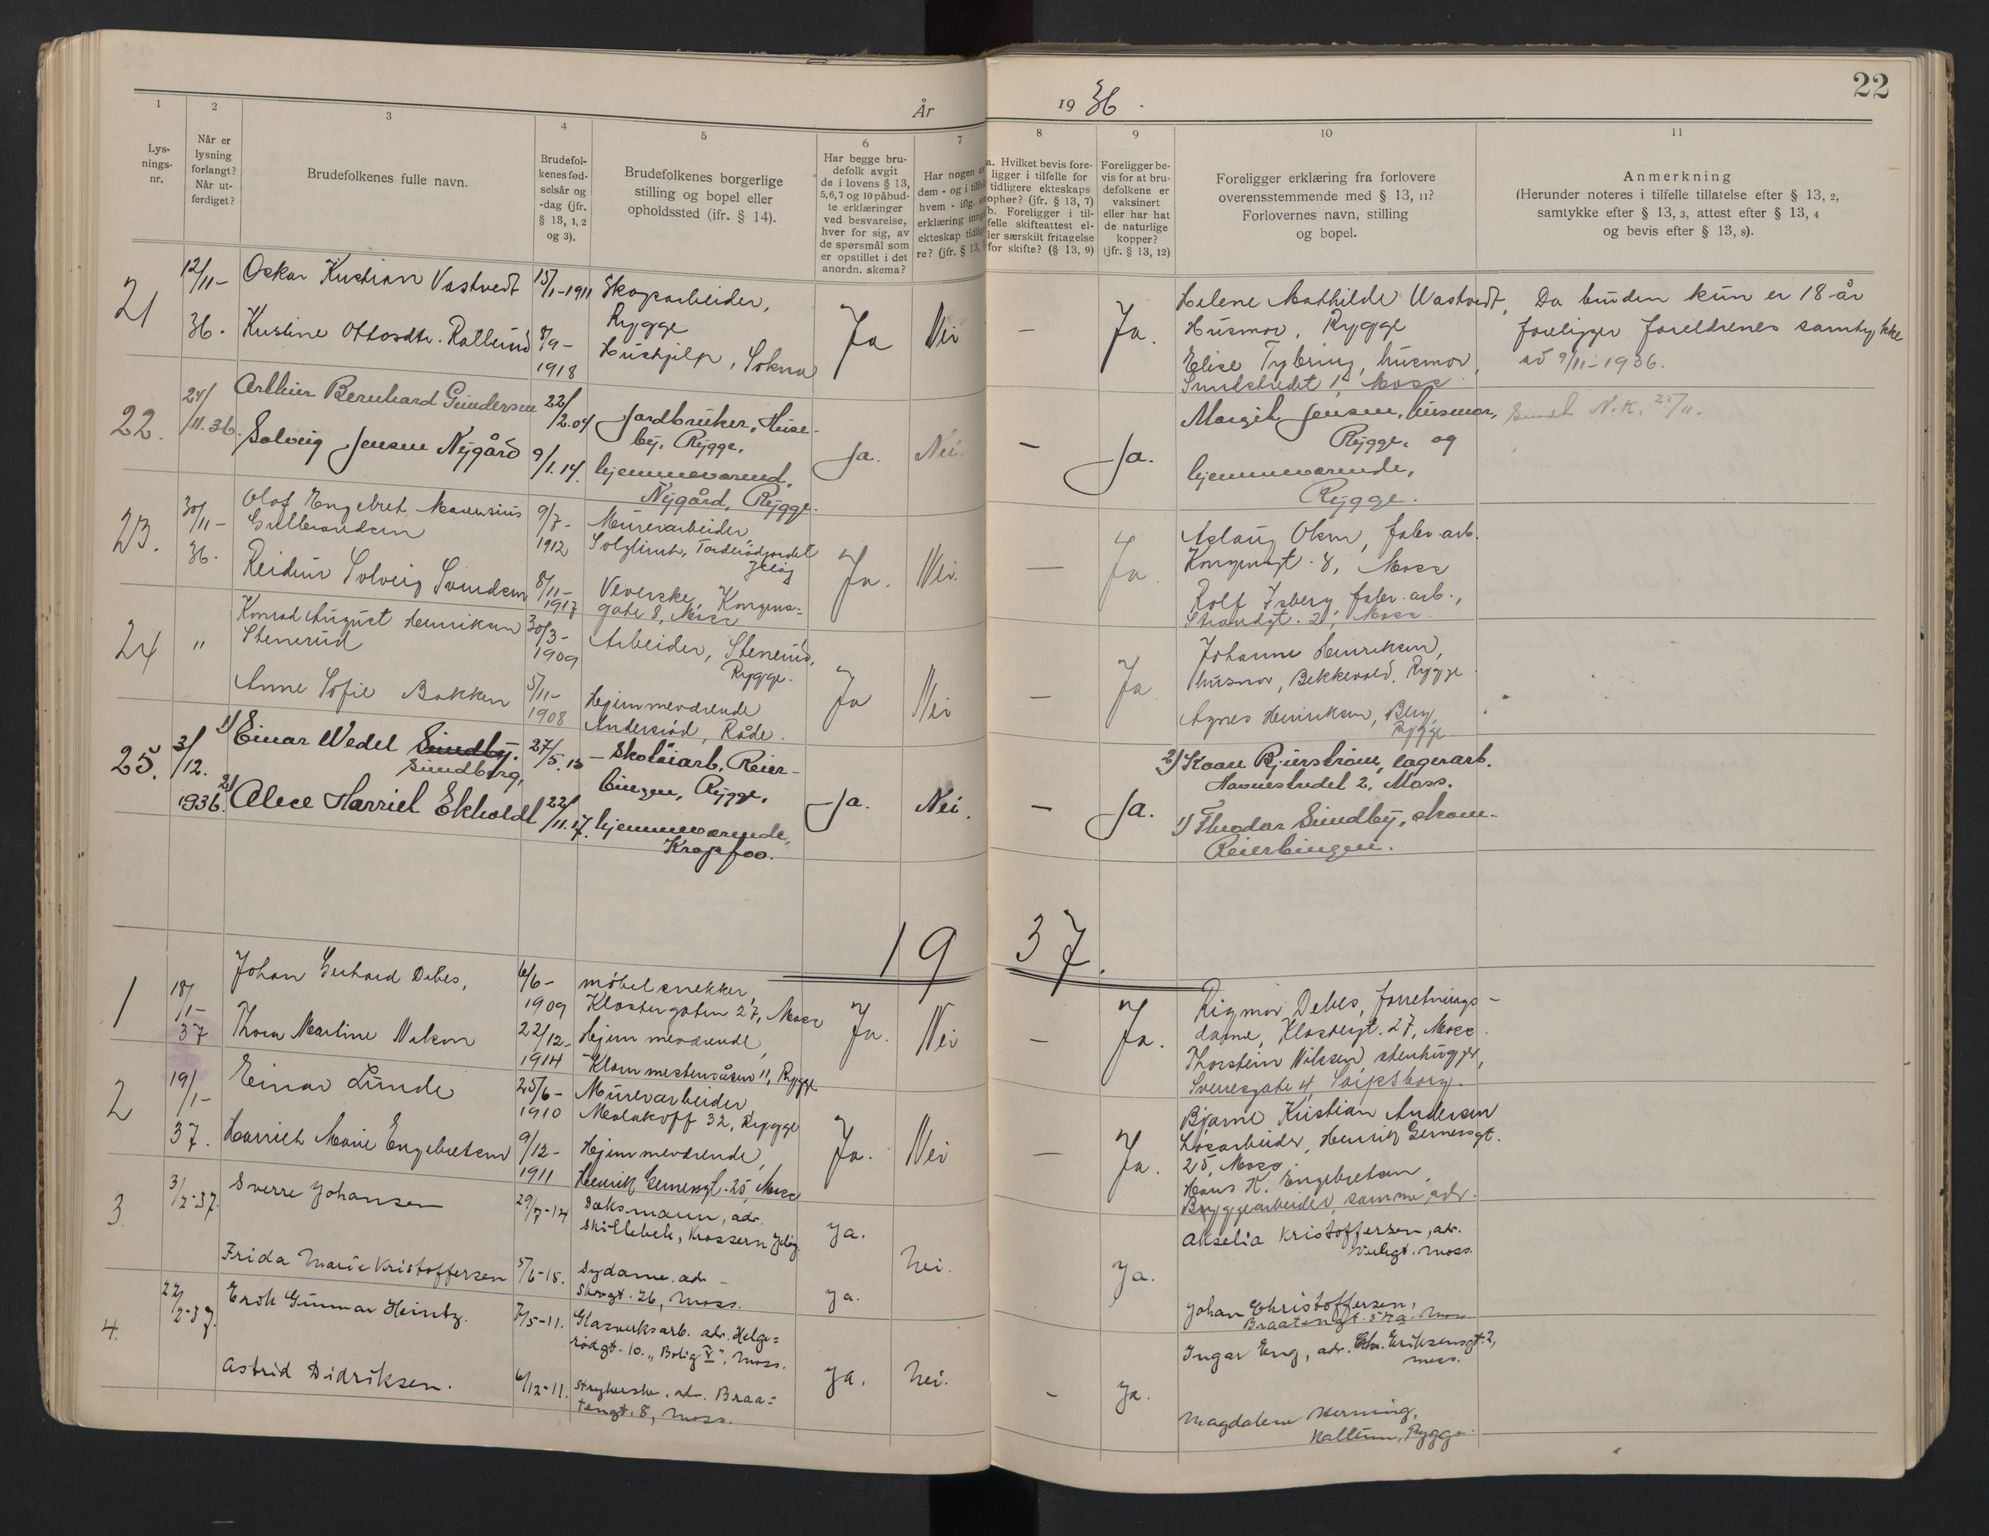 22
År 1936.
1
2
3
4
5
6
7
8
9
10
11
Lys-
nings-
nr.
Når er
lysning
forlangt?
Når ut-
ferdiget?
Brudefolkenes fulle navn.
Brudefol-
kenes fød-
selsår og
-dag (jfr.
§ 13, 1, 2
og 3).
Brudefolkenes borgerlige
stilling og bopel eller
opholdssted (jfr. § 14).
Har begge bru-
defolk avgit
de i lovens § 13,
5, 6, 7 og 10 påbud-
te erklæringer
ved besvarelse,
hver for sig, av
de spørsmål som
er opstillet i det
anordn. skema?
Har nogen av
dem - og i tilfelle
hvem - iflg.
erklæring inngått
ekteskap tidlige-
re? (jfr. § 13, 7)
a. Hvilket bevis fore-
ligger i tilfelle for
tidligere ekteskaps
ophør? (jfr. § 13, 7)
b. Foreligger i til-
felle skifteattest el-
ler særskilt fritagelse
for skifte? (§ 13, 9)
Foreligger be-
vis for at bru-
defolkene er
vaksinert
eller har hat
de naturlige
kopper?
(jfr. § 13, 12)
Foreligger erklæring fra forlovere
overensstemmende med § 13, 11?
Forlovernes navn, stilling
og bopel.
Anmerkning
(Herunder noteres i tilfelle tillatelse efter § 13, 2,
samtykke efter § 13, 3, attest efter § 13, 4
og bevis efter § 13, 8).
21
12/11-
36.
Oskar Kristian Vastvedt
Kristine Ottosdtr. Rallerud
15/1-1911
8/9-
1918
Skoparbeider,
Rygge
Hushjelp, Sokna
Ja
Nei
—
Ja.
Helene Mathilde Vastvedt,
Husmor, Rygge
Elise Tybring, husmor,
1, Moss
Da bruden kun er 18 år
foreligger foreldrenes samtykke
av 9/11-1936.
22.
24/
11.36.
Arthur Bernhard Gundersen
Solveig Jensen Nygård
22/
2.04
9/1.14.
Jordbruker, Huse-
by, Rygge.
hjemmeværend.
Nygård, Rygge.
Ja.
Nei.
—
Ja.
Margit Jensen, husmor,
Rygge. og
hjemmeværende,
Rygge.
Sendt N.K. 25/11.
23.
30/11-
36.
Olaf Engebret Mauritius
Gulbrandsen
Reidun Solveig Svendsen
9/7-
1912
8/11-
1917
Murerarbeider
Solglimt, Torderødjordet
Jeløy
Veverske, Kongens-
gate 8, Moss
Ja.
Nei.
—
Ja.
Aslaug Olsen, fabr. arb.
Kongensgt. 8, Moss
Rolf Isberg, fabr. arb.,
Strandgt. 2, Moss.
24
"
Konrad August Henriksen
Stenerud
Anne Sofie Bakken
30/3-
1909
5/11-
1908
Arbeider, Stenerud,
Rygge.
Hjemmeværende
Andersrød, Råde.
Ja
Nei
—
Ja
Johanne Henriksen,
husmor, Bekkevold, Rygge
Agnes Henriksen, Berg,
Rygge
25.
3/
12.
1936.
1) Einar Wedel Sundby.
Sundberg,
2) Alice Harriet Ekholdt
27/
5.15
22/
11.17.
— Skotøiarb. Reier-
bingen, Rygge.
hjemmeværende,
Krapfoo.
Ja.
Nei.
—
Ja.
2) Kaare Bjerstrøm, lagerarb.
Havnestredet 2, Moss.
1) Theodor Sundby, skom.
Reierbingen.
1937.
1
18/
1-
37
Johan Gerhard Debes,
Thora Martine Nilsen
6/6-
1909
22/12-
1914
møbelsnekker,
Klostergaten 27, Moss
Hjemmeværende,
Klommestensåsen 11, Rygge
Ja.
Nei
—
Ja.
Rigmor Debes, forretnings-
dame, Klostergt. 27, Moss.
Thorstein Nilsen, stenhugger,
Sverresgate 4, Sarpsborg.
2
19/
1-
37.
Einar Lunde
Harriet Marie Engebretsen
25/6-
1910
9/12-
1911
Murerarbeider
Malakoff 32, Rygge
Hjemmeværende,
Henrik Gernersgt. 25, Moss
Ja.
Nei
—
Ja.
Bjarne Kristian Andersen
Løsarbeider, Henrik Gernersgt.
25, Moss
Hans K. Engebretsen,
Bryggearbeider, samme adr.
3.
3/
2-37.
Sverre Johansen
Frida Marie Kristoffersen
29/7-14
5/6-15.
Doksmann, adr.
Skillebek, Krossern Jeløy.
Sydame. adr
Skogt. 26, Moss.
Ja.
Ja.
Nei.
Ja.
Akselia Kristoffersen, adr.
Varlogt. Moss.
Johan Christoffersen,
Braatengt. 57a, Moss
4.
22/
2-37.
Erik Gunnar Heintz.
Astrid Didriksen.
7/5-11.
6/12-11.
Glasverksarb. adr. Helge-
rødgt. 10. „Bolig V", Moss.
Strykerske. adr. Braa-
tengt. 8, Moss.
Ja.
Nei.
—
Ja.
Ingar Eng, adr. Chr. Eriksensgt. 2,
Moss.
Magdalene Herning,
Kallum, Rygge.